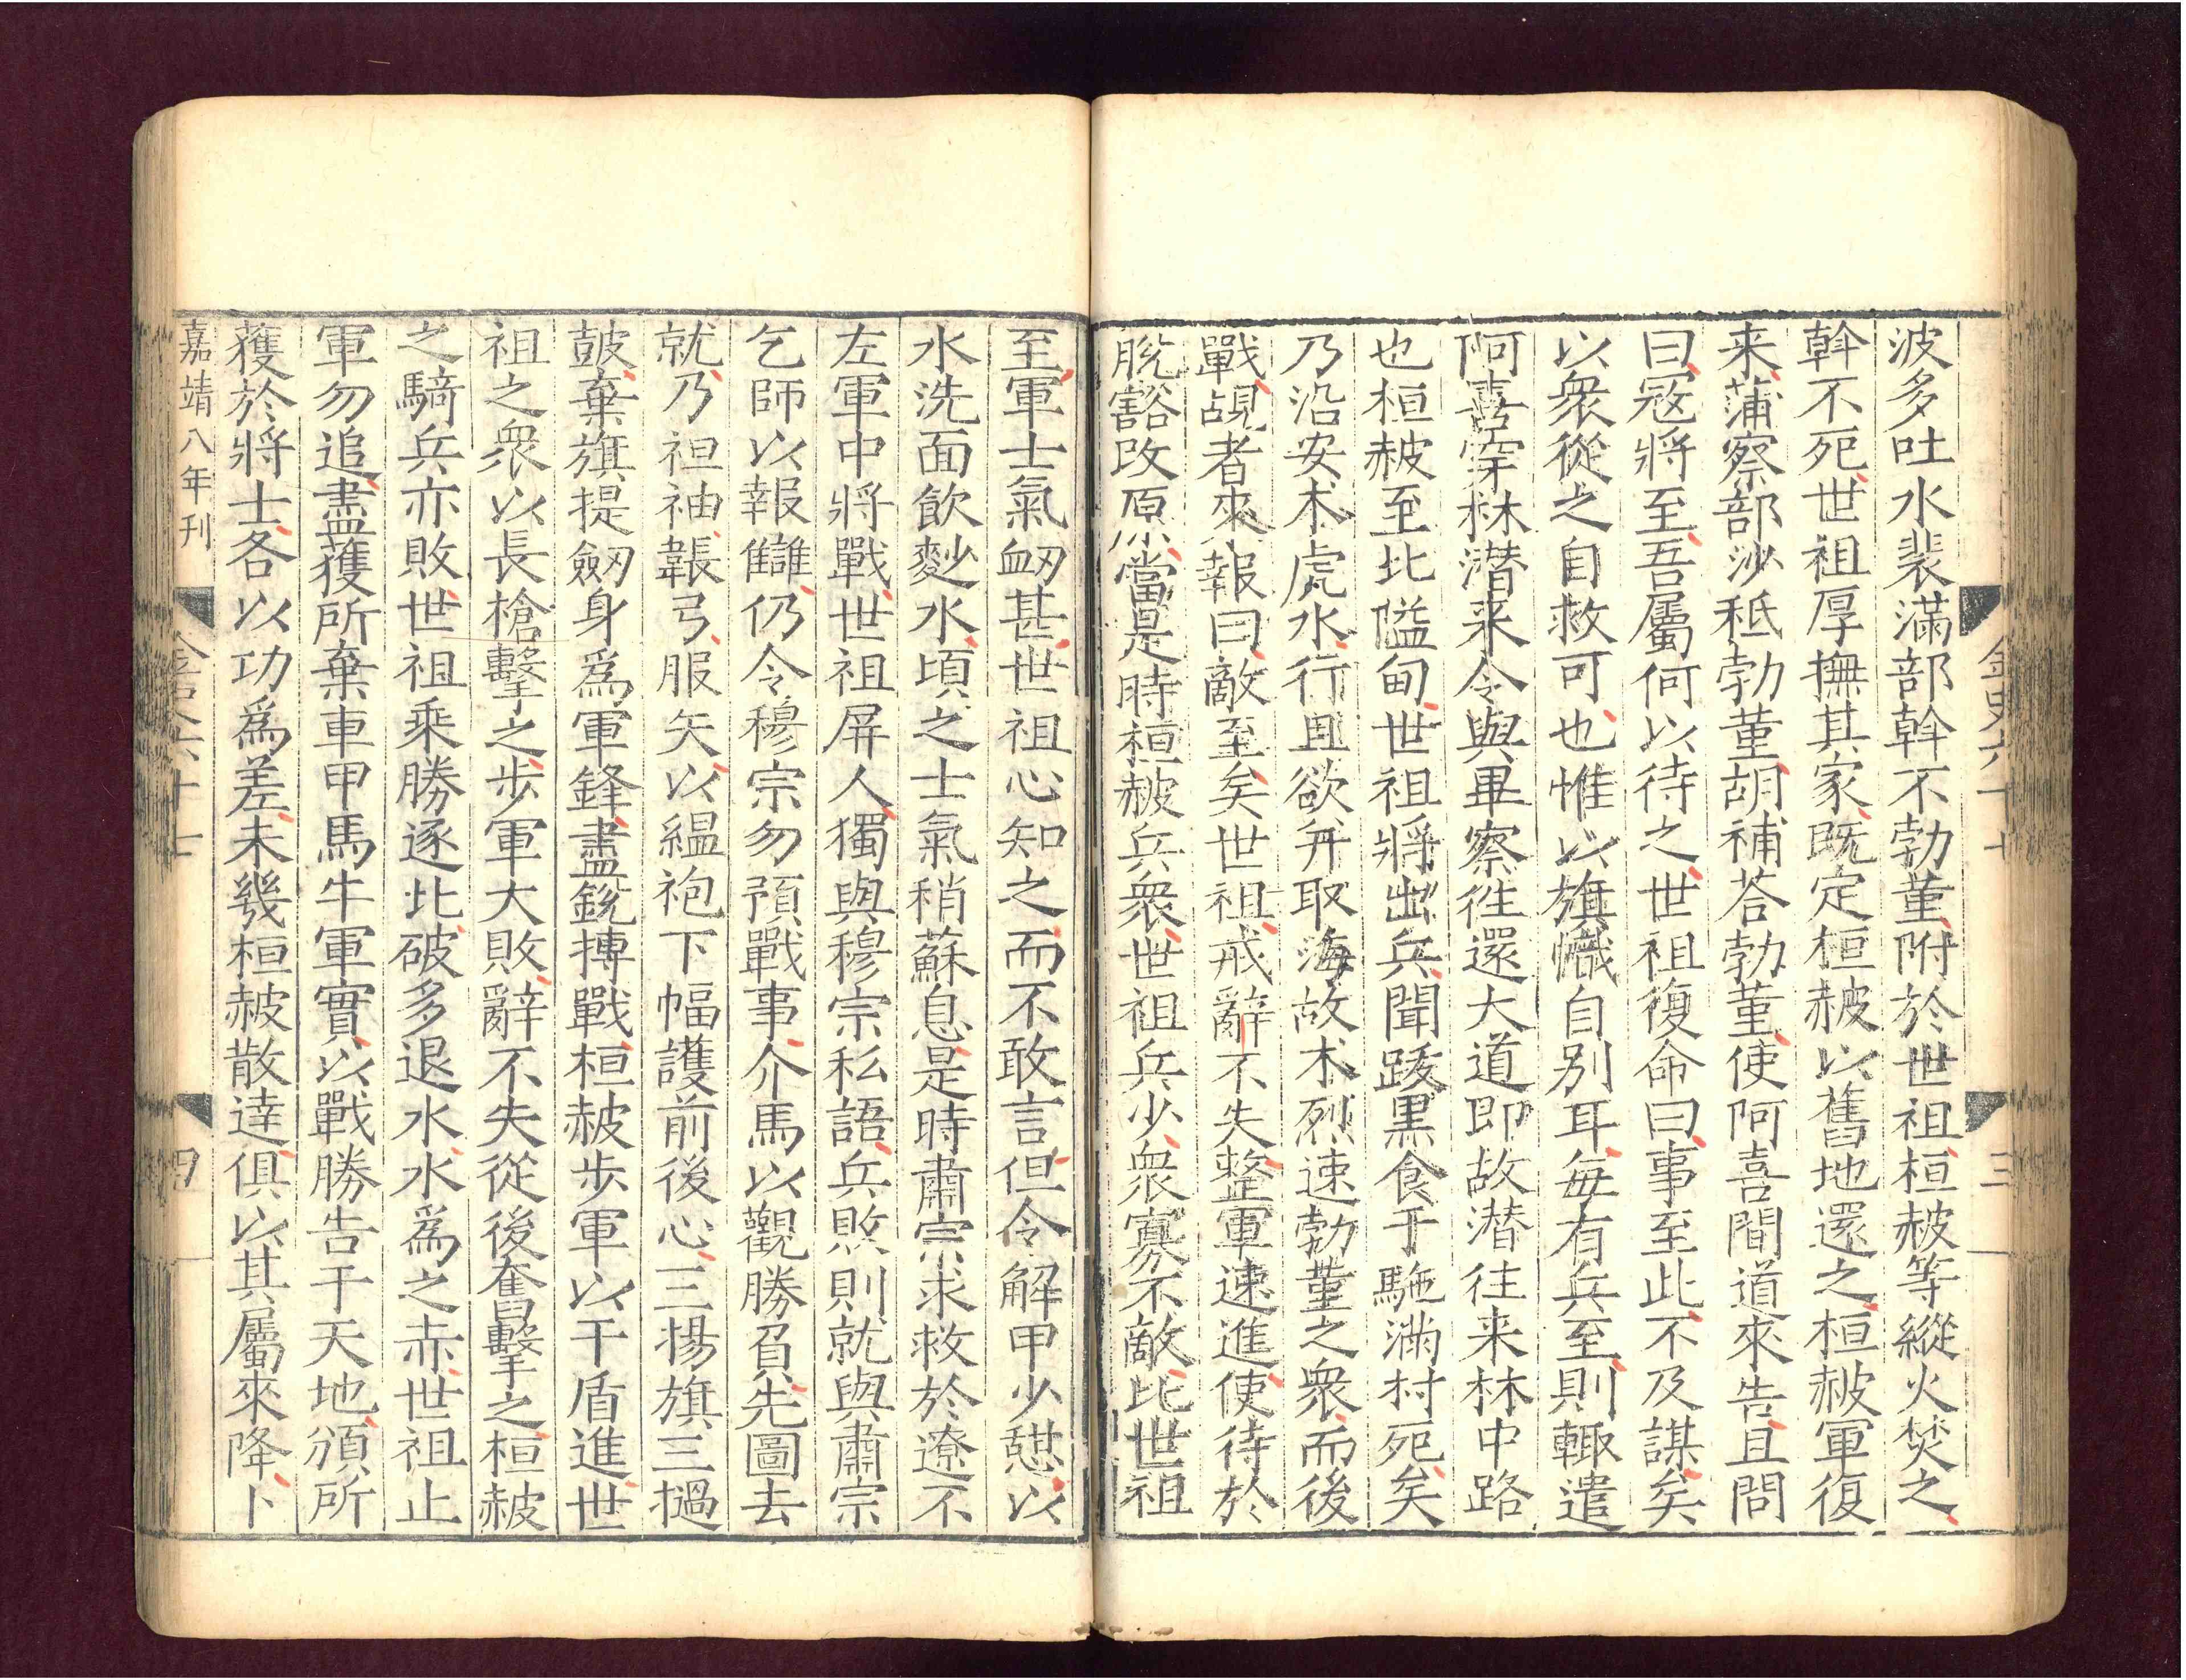 波多吐水裴滿部斡不勃菫附於世祖桓赧等縱火焚之
斡不死世祖厚撫其家既定桓赧以舊地還之桓赧軍復
来蒲察部沙秪勃菫胡補荅勃菫使阿喜間道來告且問
曰冦將至吾屬何以待之世祖復命曰事至此不及謀矣
以衆從之自救可也惟以旗幟自别耳每有兵至則輙遣
阿喜穿林潜来令與畢察徃還大道即故潜往来林中路
也桓赧至北隘甸世祖將出兵聞跋黒食于駞滿村死矣
乃沿安术虎水行且欲并取海故术烈速勃菫之衆而後
戰覘者來報曰敵至矣世祖戒辭不失整軍速進使待於
脫豁改原當是時桓赧兵衆世祖兵少衆寡不敵比世祖
金史六十七
三
至軍士氣衂甚世祖心知之而不敢言但令解甲少憇以
水洗面飲麨水頃之士氣稍蘇息是時肅宗求救於遼不
左軍中將戰世祖屏人獨與穆宗私語兵敗則就與肅宗
乞師以報讎仍令穆宗勿預戰事介馬以觀勝負先圖去
就乃袒袖韔弓服矢以縕袍下幅護前後心三揚旗三撾
鼓棄旗提劒身爲軍鋒盡銳搏戰桓赧歩軍以干盾進世
祖之衆以長槍擊之歩軍大敗辭不失從後奮擊之桓赧
之騎兵亦敗世祖乘勝逐北破多退水水爲之赤世祖止
軍勿追盡獲所棄車甲馬牛軍實以戰勝告于天地頒所
獲於將士各以功爲差未幾桓赧散達俱以其屬來降卜
嘉靖八年刊
金史六十七
四